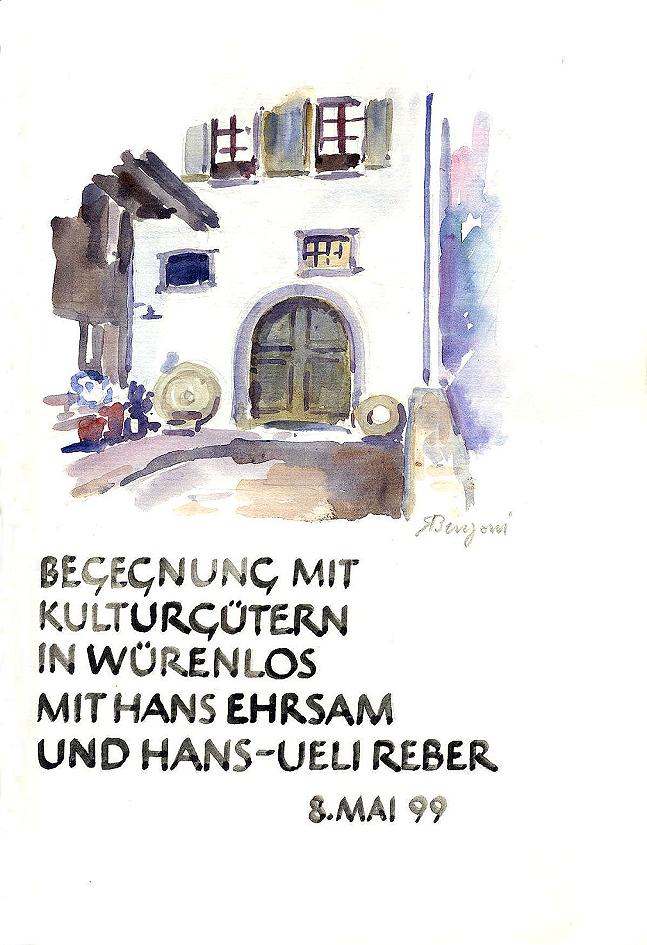 Benzoni
BEGEGNUNG MIT
KULTURGÜTERN
IN WÜRENLOS
MIT HANS EHRSAM
UND HANS-UELI REBER
8. MAI 99